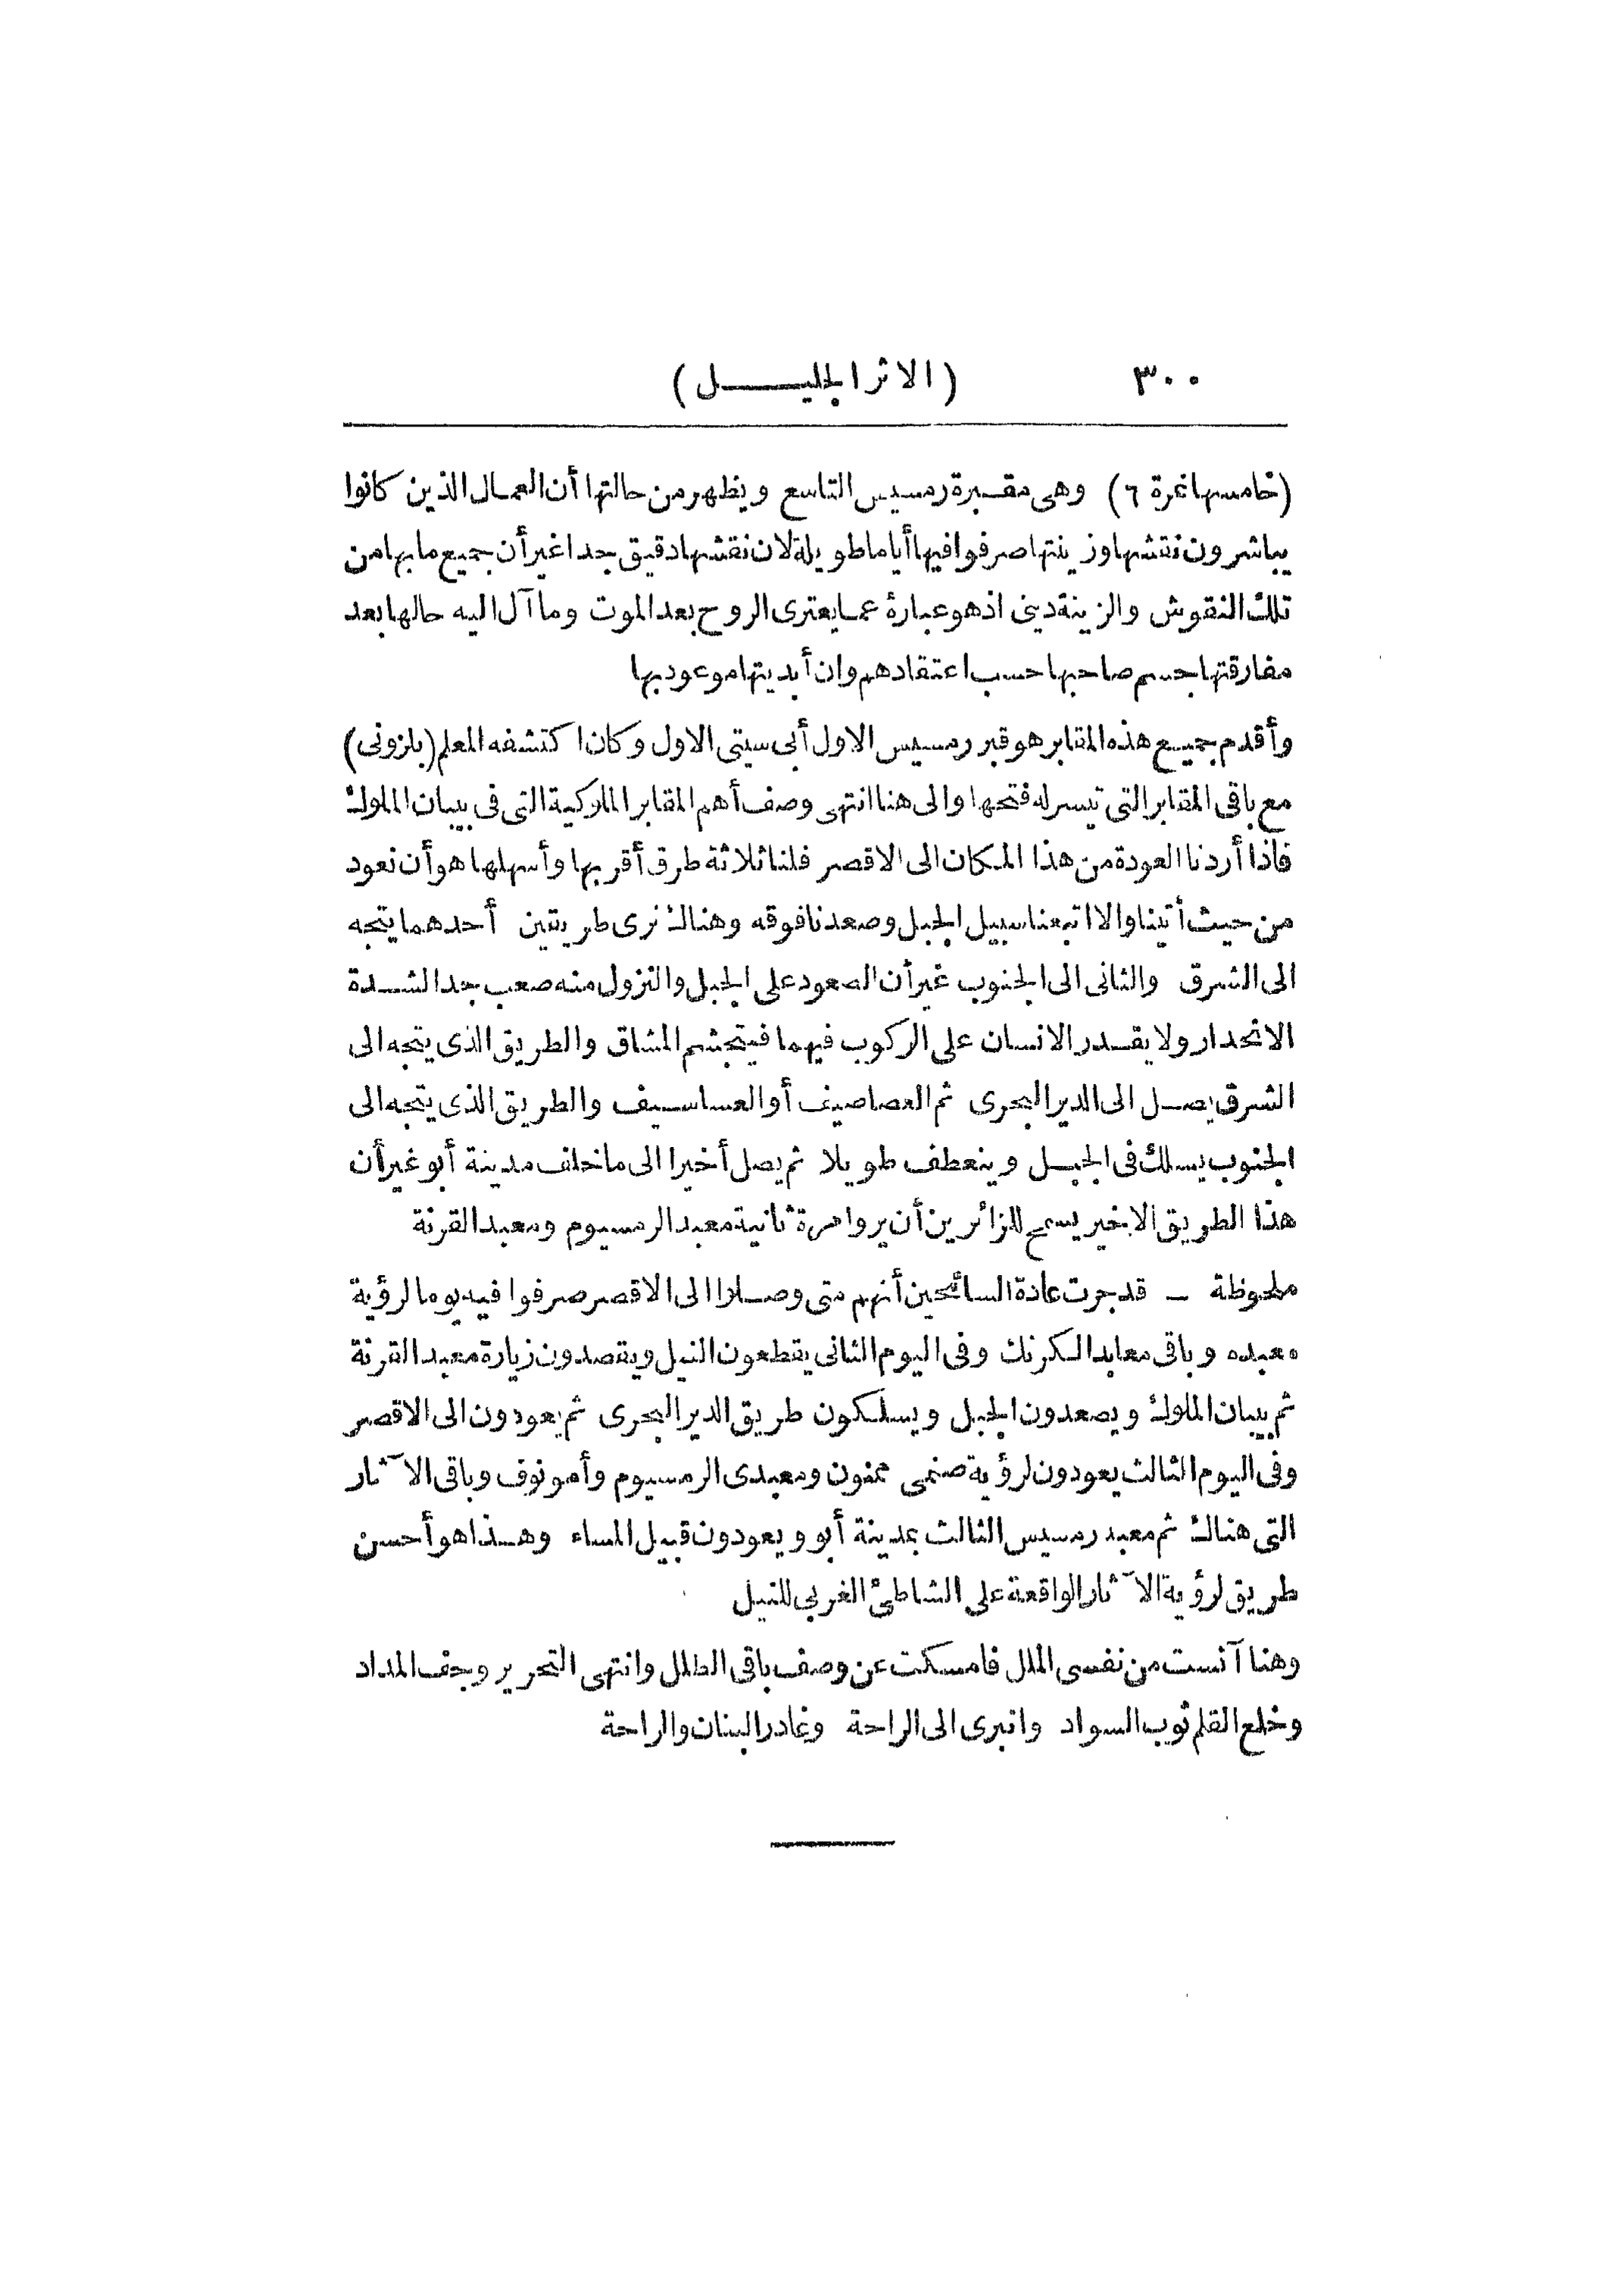 ٣٠٠ (الاثر الجليل)
(خامسها نمرة ٦) وهى مقبرة رمسيس التاسع ويظهر من حالتها أن العمال الذين كانوا
يباشرون نقشها وزينتها صرفوا فيها أياما طويلة لان نقشها دقيق جدا غير أن جميع ما بها من
تلك النقوش والزينة دينى اذ هو عبارة عما يعترى الروح بعد الموت وما آل اليه حالها بعد
مفارقتها جسم صاحبها حسب اعتقادهم وان أبديتها موعود بها
وأقدم جميع هذه المقابر هو قبر رمسيس الاول أبى سيتى الاول وكان اكتشفه المعلم (بلزونى)
مع باقى المقابر التى تيسر له فتحها والى هنا انتهى وصف أهم المقابر الملوكية التى فى بيبان الملوك
فاذا أردنا العودة من هذا المكان الى الاقصر فلنا ثلاثة طرق أقربها وأسهلها هو أن نعود
من حيث أتينا والا اتبعنا سبيل الجبل وصعدنا فوقه وهناك نرى طريقين أحدهما يتجه
الى الشرق والثانى الى الجنوب غير أن الصعود على الجبل والنزول منه صعب جدا لشدة
الانحدار ولا يقدر الانسان على الركوب فيهما فيتجشم المشاق والطريق الذى يتجه الى
الشرق يصل الى الدير البحرى ثم العصاصيف أو العساسيف والطريق الذى يتجه الى
الجنوب يسلك فى الجبل وينعطف طويلا ثم يصل أخيرا الى ما خلف مدينة أبو غير أن
هذا الطريق الاخير يسمح للزائرين أن يروا مرة ثانية معبد الرمسيوم ومعبد القرنة
ملحوظة — قد جرت عادة السائحين أنهم متى وصلوا الى الاقصر صرفوا فيه يوما لرؤية
معبده وباقى معابد الكرنك وفى اليوم الثانى يقطعون النيل ويقصدون زيارة معبد القرنة
ثم بيبان الملوك ويصعدون الجبل ويسلكون طريق الدير البحرى ثم يعودون الى الاقصر
وفى اليوم الثالث يعودون لرؤية صنمى ممنون ومعبدى الرمسيوم وأمونوف وباقى الآثار
التى هناك ثم معبد رمسيس الثالث بمدينة أبو ويعودون قبيل المساء وهذا هو أحسن
طريق لرؤية الآثار الواقعة على الشاطئ الغربى للنيل
وهنا آنست من نفسى الملل فامسكت عن وصف باقى الطلل وانتهى التحرير وجف المداد
وخلع القلم ثوب السواد وانبرى الى الراحة وغادر البنان والراحة